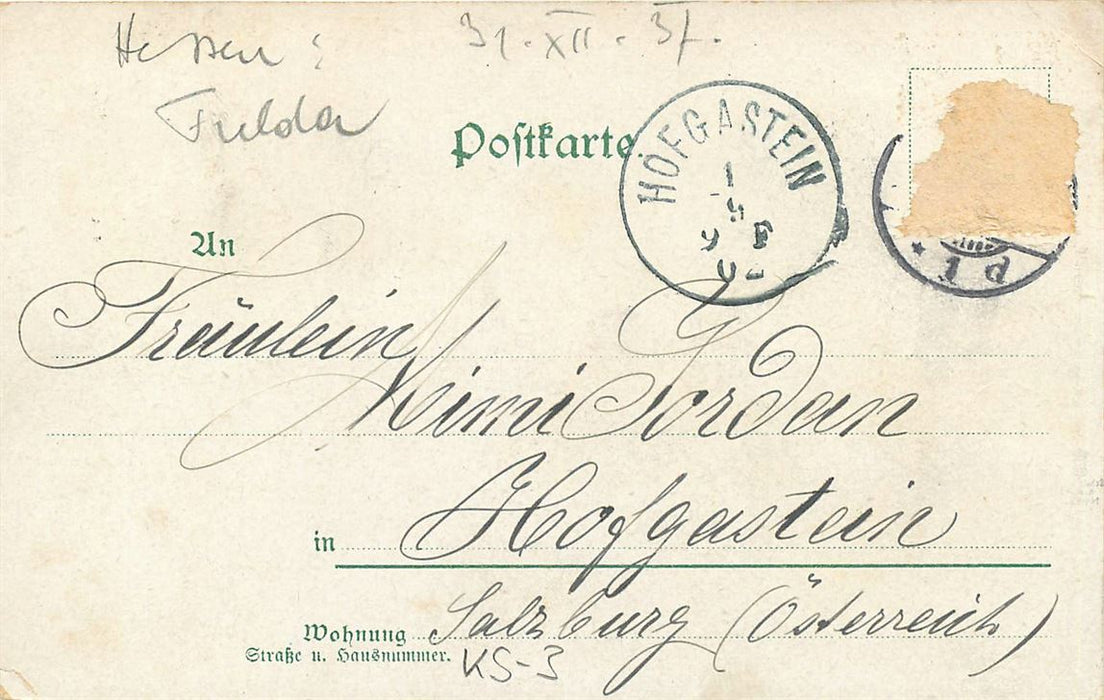 Hessen: 31.XII.37.
Fulda
Postkarte
HOFGASTEIN
1
9
02
1 d
An
Fräulein
Mimi Jordan
in Hofgastein
Wohnung Salzburg (Österreich)
Straße u. Hausnummer.
KS-3